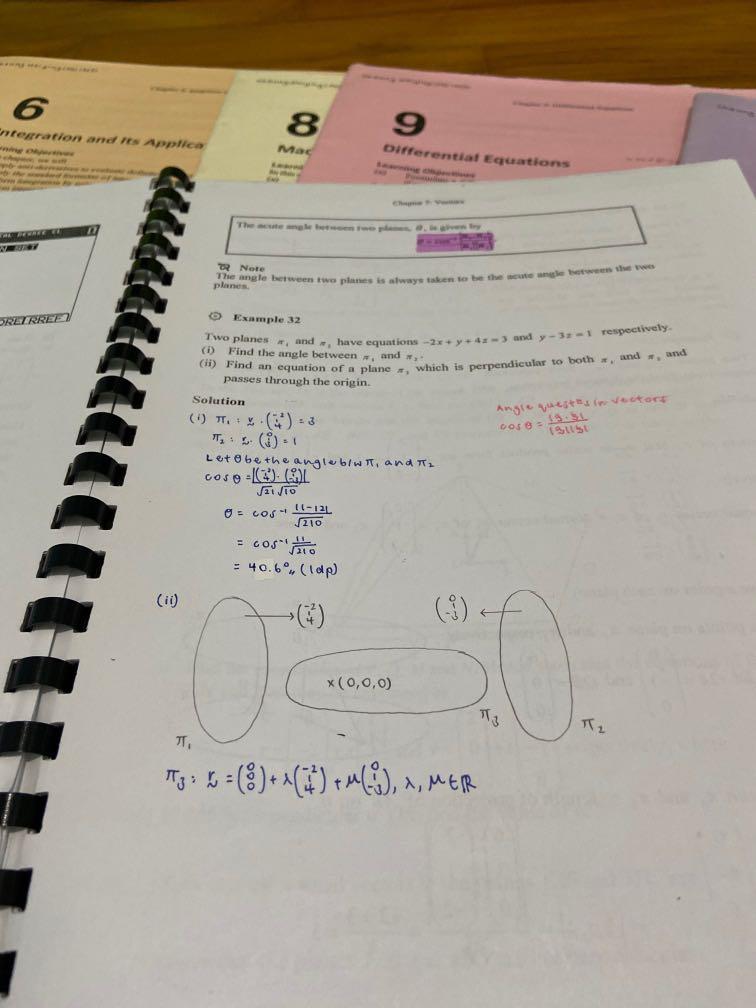 6
Integration and Its Applica
8
Mac
9
Differential Equations
Learning Objectives
Chapter 7: Vectors
The acute angle between two planes, θ, is given by
Note
The angle between two planes is always taken to be the acute angle between the two
planes.
Example 32
Two planes π₁ and π₂ have equations −2x + y + 4z = 3 and y − 3z = 1 respectively.
(i) Find the angle between π₁ and π₂.
(ii) Find an equation of a plane π₃ which is perpendicular to both π₁ and π₂ and
passes through the origin.
Solution
Angle quest≞s in vectors
cos θ =
(i) π₁ : r · (−2 1 4) = 3
π₂ : r · (0 1 −3) = 1
Let θ be the angle b/w π₁ and π₂
cos θ = |(−2 1 4) · (0 1 −3)| / √21 √10
θ = cos⁻¹ |1−12| / √210
= cos⁻¹ 11 / √210
= 40.6° (1dp)
(ii)
(−2 1 4)
(0 1 −3)
×(0,0,0)
π₁
π₃
π₂
π₃ : r = (0 0 0) + λ(−2 1 4) + μ(0 1 −3), λ, μ ∈ ℝ